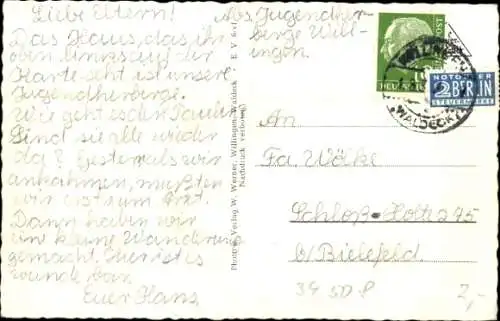 Liebe Eltern!
Das Haus, das ihr
oben links auf der
Karte seht ist unsere
Jugendherberge.
Wie geht es den Tauben
Sind sie alle wieder
da? Gestern als wir
ankahmen, mußten
wir erst zum Arzt.
Dann haben wir
eine kleine Wanderung
gemacht. Hier ist es
wunde bar.
Euer Hans
Abs. Jugendher
berge Will-
ingen.
Photogr. Verlag W. Werner, Willingen, Waldeck
Nachdruck verboten
POST
10
WILLINGEN
(WALDECK)
NOTOPFER
2 BERLIN
STEUERMARKE
An
Fa. Wölke
Schloß-Holte 275
b/Bielefeld
34 SD P
2,-